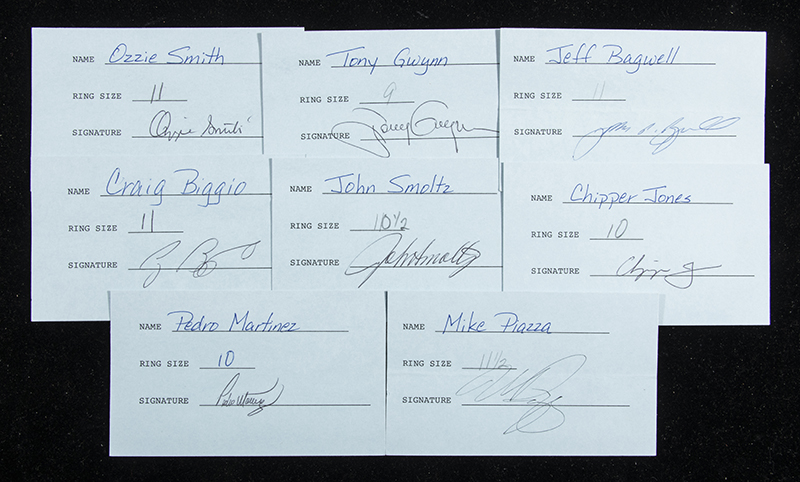 NAME Ozzie Smith
RING SIZE 11
SIGNATURE Ozzie Smith
NAME Tony Gwynn
RING SIZE 9
SIGNATURE Tony Gwynn
NAME Jeff Bagwell
RING SIZE 11
SIGNATURE
NAME Craig Biggio
RING SIZE 11
SIGNATURE
NAME John Smoltz
RING SIZE 10 1/2
SIGNATURE John Smoltz
NAME Chipper Jones
RING SIZE 10
SIGNATURE
NAME Pedro Martinez
RING SIZE 10
SIGNATURE
NAME Mike Piazza
RING SIZE 11 1/2
SIGNATURE